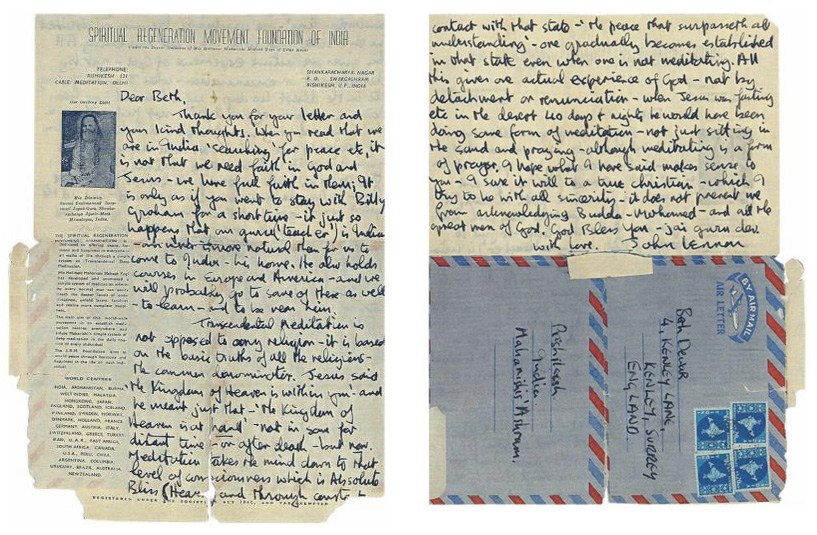 SPIRITUAL REGENERATION MOVEMENT FOUNDATION OF INDIA
TELEPHONE:
RISHIKESH 121
CABLE: MEDITATION, DELHI
SHANKARACHARYA NAGAR
P. O. SWARGASHRAM
RISHIKESH, U.P., INDIA
Dear Beth,
Thank you for your letter and
your kind thoughts. When you read that we
are in India 'searching' for peace etc, it
is not that we need faith in God and
Jesus - we have full faith in them; It
is only as if you went to stay with Billy
Graham for a short time - it just so
happens that our guru (teacher) is Indian
- and what is more natural than for us to
come to India - his home. He also holds
courses in Europe and America - and we
will probably go to some of these as well
- to learn - and to be near him.
Transcendental Meditation is
not opposed to any religion - it is based
on the basic truths of all the religions -
the common denominator. Jesus said
'the Kingdom of Heaven is within you' and
he meant just that - 'the Kingdom of
Heaven is at hand' - not in some far
distant time - or after death - but now.
Meditation takes the mind down to that
level of consciousness which is Absolute
Bliss (Heaven) and through constant
His Divinity
THE SPIRITUAL REGENERATION
WORLD CENTRES
INDIA, AFGHANISTAN, BURMA,
WEST INDIES, MALAYSIA,
HONGKONG, JAPAN,
ENGLAND, SCOTLAND, ICELAND,
FINLAND, SWEDEN, NORWAY,
DENMARK, HOLLAND, FRANCE,
GERMANY, AUSTRIA, ITALY,
SWITZERLAND, GREECE, TURKEY,
IRAN, U.A.R., EAST AFRICA,
SOUTH AFRICA, CANADA,
U.S.A., PERU, CHILE,
ARGENTINA, COLUMBIA,
URUGUAY, BRAZIL, AUSTRALIA,
NEWZEALAND.
contact with that state - 'the peace that surpasseth all
understanding' - one gradually becomes established
in that state even when one is not meditating. All
this gives one actual experience of God - not by
detachment or renunciation - when Jesus was fasting
etc in the desert 40 days & nights he would have been
doing some form of meditation - not just sitting in
the sand and praying - although meditating is a form
of prayer. I hope what I have said makes sense to
you - I sure it will to a true christian - which I
try to be with all sincerity - it does not prevent me
from acknowledging Budda - Mohamed - and all the
great men of God. God Bless You - jai guru dev
with love. John Lennon
BY AIR MAIL
AIR LETTER
Beth Dewar
4, KENLEY LANE,
KENLEY, SURREY
ENGLAND
Rishikesh
India
Maharishis' Ashram